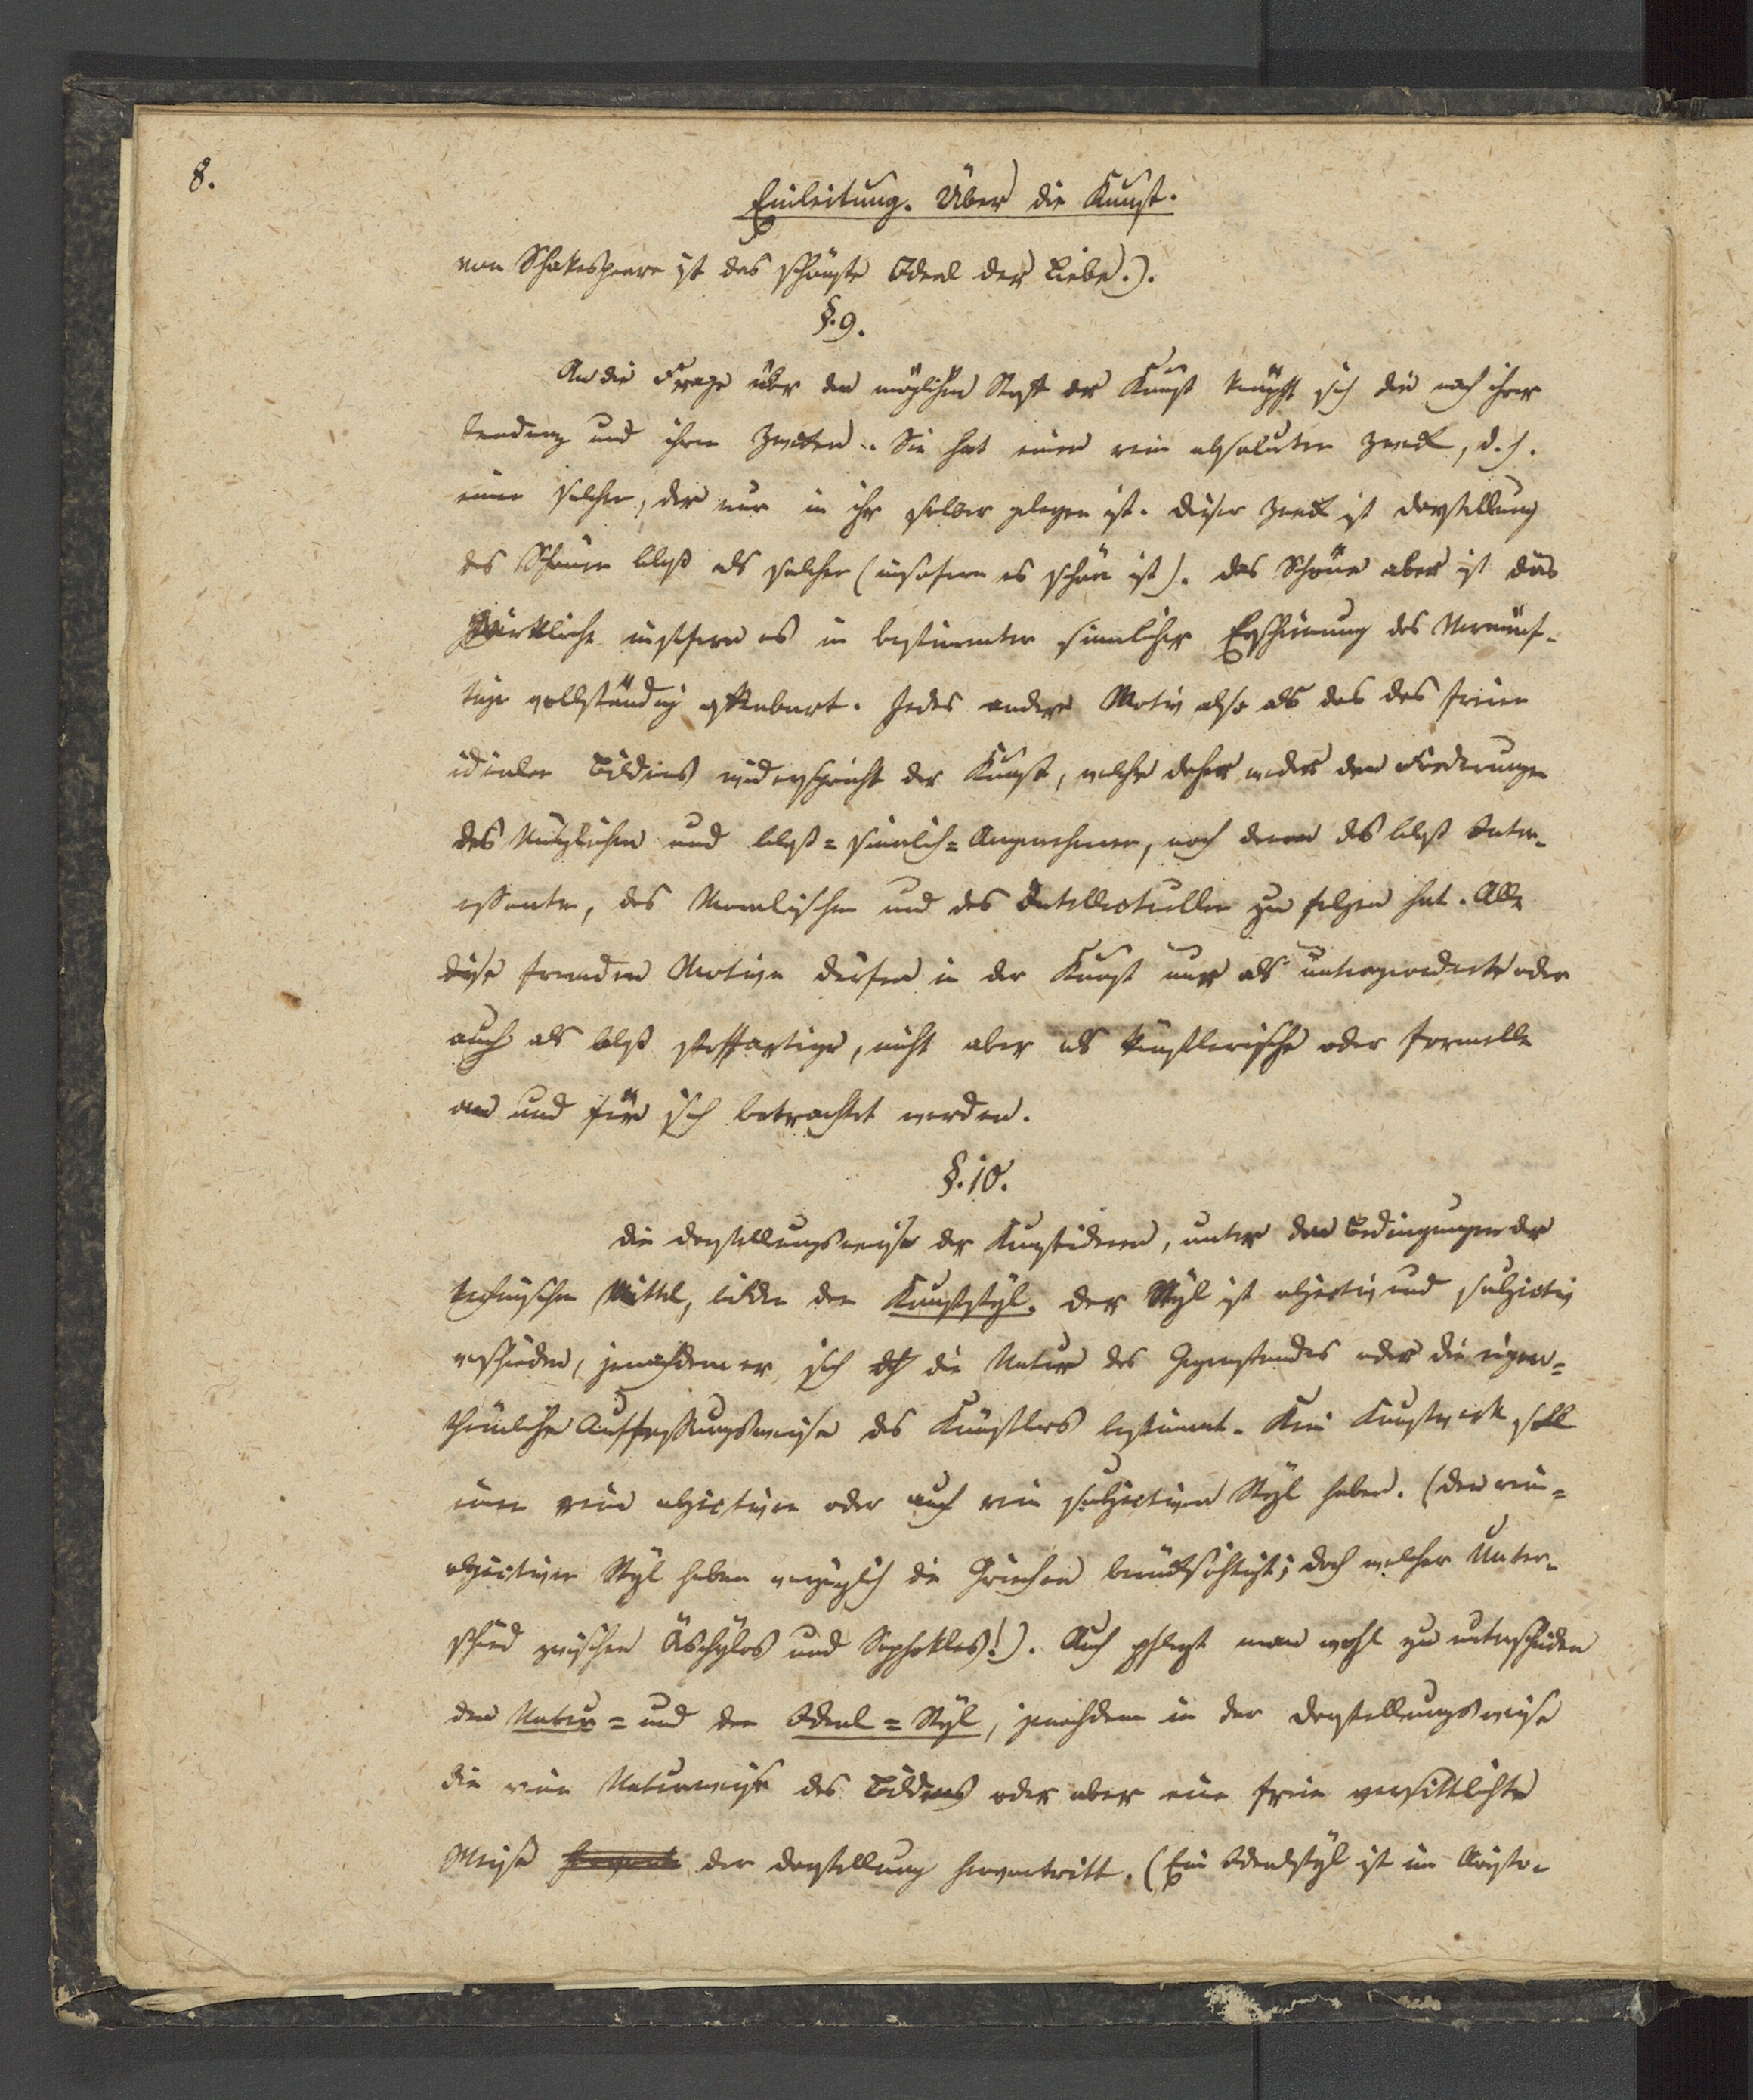 8.
Einleitung. Über die Kunst.
von Schakespeare ist das schönste Ideal der Liebe.).
§. 9.
An die Frage über den möglichen Stoff der Kunst knüpft sich die nach ihrer
Tendenz und ihren Zwecken. Sie hat einen rein absoluten Zweck, d. h.
einen solchen, der nur in ihr selber gelegen ist. Dieser Zweck ist Darstellung
des Schönen bloß als solchen (insofern es schön ist). Das Schöne aber ist das
Wirkliche insofern es in bestimmter sinnlicher Erscheinung das Vernünf-
tige vollständig offenbart. Jedes andere Motiv also als das des freien
idealen Bildens widerspricht der Kunst, welche daher weder den Forderungen
des Nützlichen und bloß=sinnlich=Angenehmen, noch denen des bloß Inter-
essanten, des Moralischen und des Intellectuellen zu folgen hat. Alle
diese fremden Motive dürfen in der Kunst nur als untergeordnete oder
auch als bloß stoffartige, nicht aber als künstlerische oder formelle
an und für sich betrachtet werden.
§. 10.
Die Darstellungsweise der Kunstideen, unter den Bedingungen der
technischen Mittel, bilden den Kunststyl. Der Styl ist objectiv und subjectiv
verschieden, jenachdem er sich dch die Natur des Gegenstandes oder die eigen=
thümliche Auffassungsweise des Künstlers bestimmt. Kein Kunstwerk soll
nur rein objectiven oder auch rein subjectiven Styl haben. (Den rein=
objectiven Styl haben vorzüglich die Griechen berücksichtigt; doch welcher Unter-
schied zwischen Äschylos und Sophokles!). Auch pflegt man wohl zu unterscheiden
den Natur= und den Ideal=Styl, jenachdem in der Darstellungsweise
die reine Naturweise des Bildens oder aber eine freie versittlichte
Weise der Darstellung hervortritt. (Ein Idealstyl ist im Aristo-